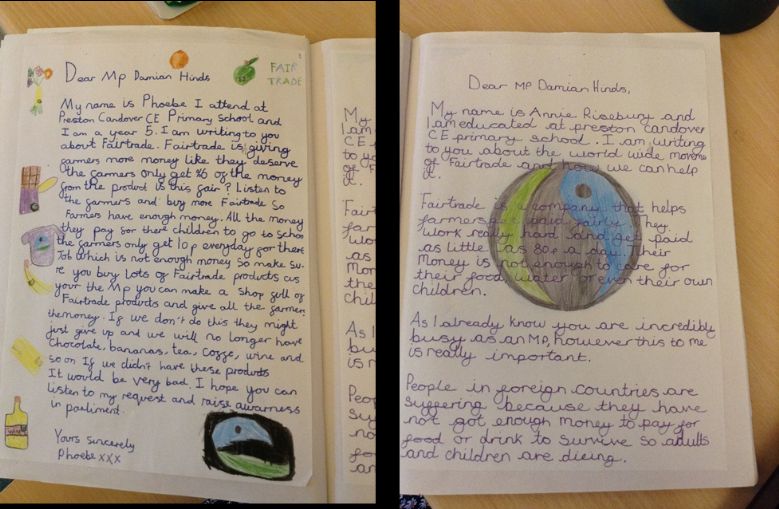 FAIR
TRADE
Dear MP Damian Hinds
My name is Phoebe I attend at
Preston Candover CE Primary School and
I am a year 5. I am writing to you
about Fairtrade. Fairtrade is giving
farmers more money like they deserve
the farmers only get %6 of the money
from the product is this fair? Listen to
the farmers and buy more Fairtrade So
Farmers have enough money. All the money
they pay for there children to go to school
the farmers only get 10p everyday for there
Job which is not enough money So make su-
re you buy lots of Fairtrade products as
your the Mp you can make a shop full of
Fairtrade products and give all the farmers
the money. If we don't do this they might
just give up and we will no longer have
chocolate, bananas, tea, coffe, wine and
so on If we didn't have these products
It would be very bad. I hope you can
listen to my request and raise awarness
in parliment.
Yours Sincerely
Phoebe xxx
Dear MP Damian Hinds,
My name is Annie Risebury and
I am educated at preston candover
CE primary school. I am writing
to you about the world wide movme
of Fairtrade and how we can help
it.
Fairtrade is a company that helps
farmers get paid fairly. They
work really hard and get paid
as little as 80p a day. Their
money is not enough to care for
their food, water or even their own
children.
As I already know you are incredibly
busy as an MP, however this to me
is really important.
People in foreign countries are
suffering because they have
not got enough money to pay for
food or drink to survive so adults
and children are dieing.